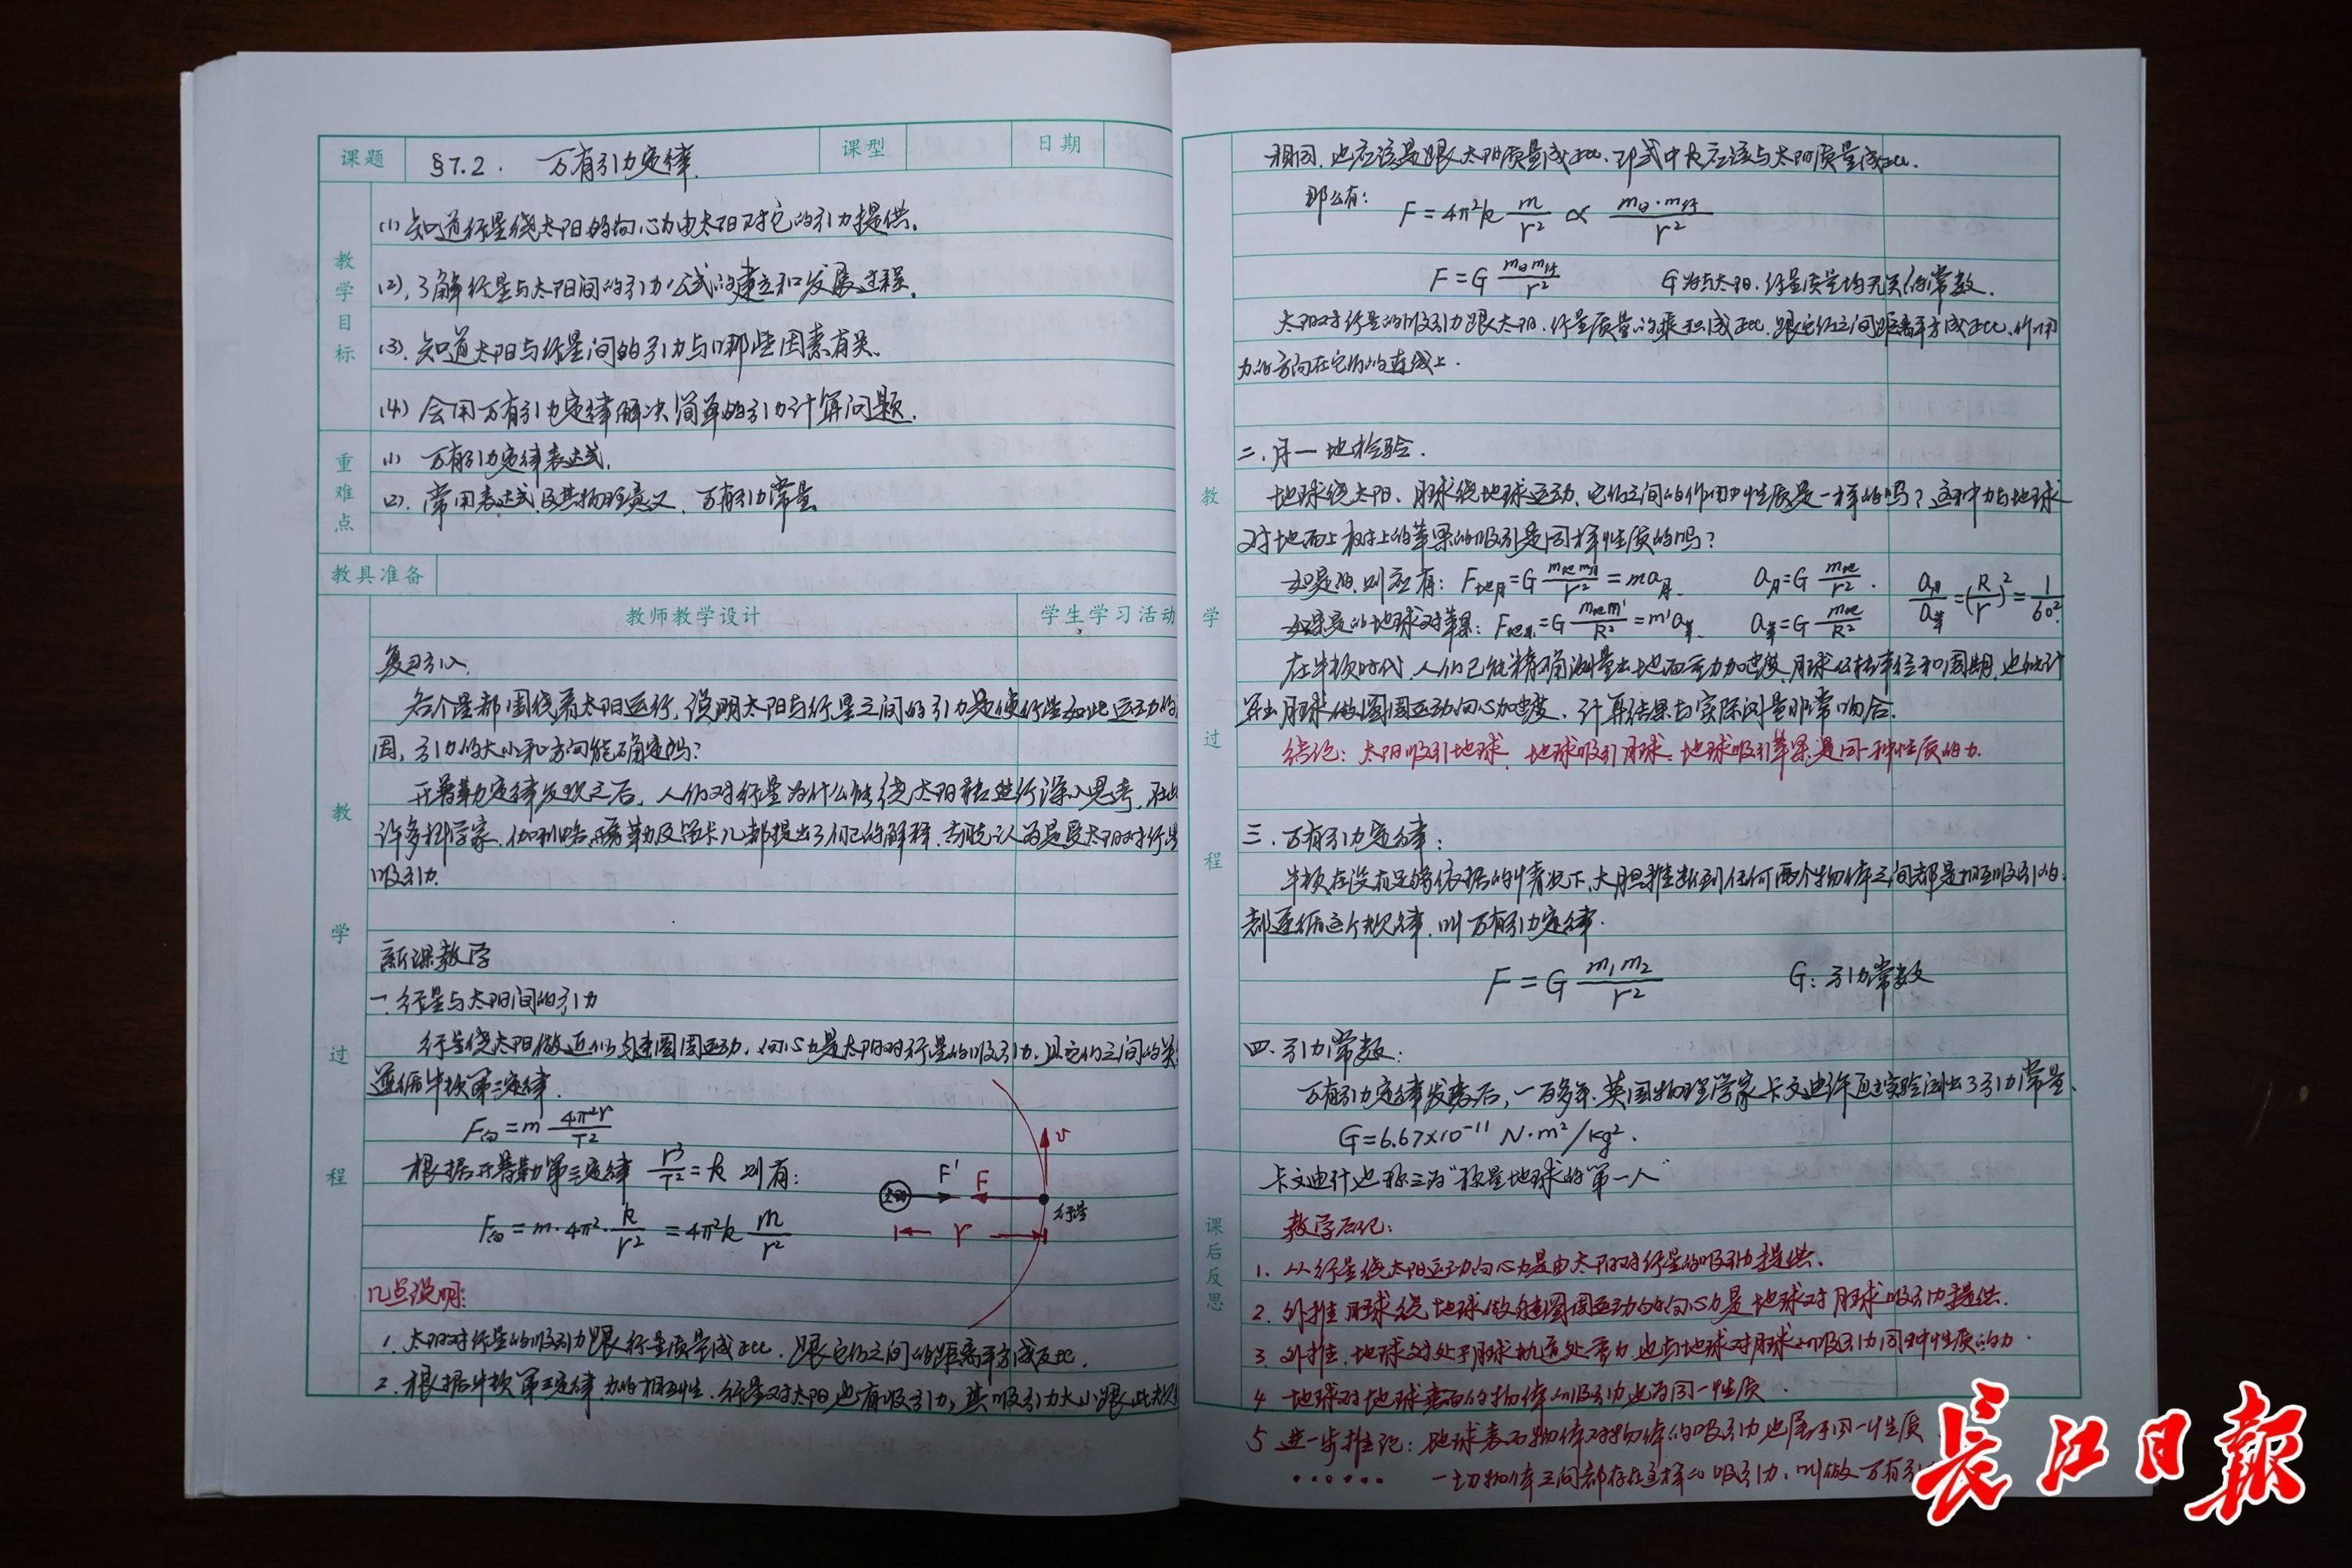 课题 §7.2. 万有引力定律. 课型 日期
教学目标
(1) 知道行星绕太阳的向心力由太阳对它的引力提供.
(2). 了解行星与太阳间的引力公式的建立和发展过程.
(3). 知道太阳与行星间的引力与哪些因素有关.
(4) 会用万有引力定律解决简单的引力计算问题.
重难点
(1) 万有引力定律表达式.
(2). 常用表达式及其物理意义、万有引力常量
教具准备
教师教学设计 学生学习活动
教学过程
复习引入.
各个星都围绕着太阳运行, 说明太阳与行星之间的引力是使行星如此运动的
因, 引力的大小和方向能确定吗?
开普勒定律发现之后, 人们对行星为什么能绕太阳 进行深入思考,
许多科学家. 伽利略、开普勒及笛卡儿都提出了自己的解释. 认为是受太阳对行
吸引力.
新课教学
一. 行星与太阳间的引力
行星绕太阳做近似匀速圆周运动, 向心力是太阳对行星的吸引力. 且它们之间的关
遵循牛顿第二定律.
F向 = m 4π²r/T²
根据开普勒第三定律 r³/T² = k 则有:
F向 = m·4π²·k/r² = 4π²k m/r²
太阳 F' F v 行星
r
几点说明:
1. 太阳对行星的吸引力跟行星质量成正比. 跟它们之间的距离平方成反比.
2. 根据牛顿第三定律 力的相互性. 行星对太阳也有吸引力, 其吸引力大小跟此
相同. 也应该是跟太阳质量成正比. 即式中k应该与太阳质量成正比.
那么有: F = 4π²k m/r² ∝ m日·m行/r²
F = G m日m行/r² G为与太阳. 行星质量均无关的常数.
太阳对行星的吸引力跟太阳. 行星质量的乘积成正比. 跟它们之间距离平方成正比. 作用
力的方向在它们的连线上.
教学过程
二. 月一地检验.
地球绕太阳、月球绕地球运动, 它们之间的作用力性质是一样的吗? 这种力与地球
对地面上树上的苹果的吸引是同样性质的吗?
如是的, 则应有: F地月 = G m地m月/r² = ma月. a月 = G m地/r². a月/a苹 = (R/r)² = 1/60².
如果是的地球对苹果: F地苹 = G m地m'/R² = m'a苹. a苹 = G m地/R²
在牛顿时代, 人们已能精确测量出地面重力加速度、月球公转半径和周期, 也能计
算出月球做圆周运动向心加速度. 计算结果与实际测量非常吻合.
结论: 太阳吸引地球、地球吸引月球、地球吸引苹果是同一种性质的力.
三. 万有引力定律:
牛顿在没有足够依据的情况下, 大胆推断到任何两个物体之间都是相互吸引的.
都遵循这个规律. 叫万有引力定律.
F = G m₁m₂/r² G: 引力常数
四. 引力常数:
万有引力定律发表后, 一百多年. 英国物理学家卡文迪许通过实验测出了引力常量.
G = 6.67×10⁻¹¹ N·m²/kg².
卡文迪许也称之为“称量地球的”第一人”
课后反思
教学后记:
1. 从行星绕太阳运动向心力是由太阳对行星的吸引力提供.
2. 外推 月球绕地球做 圆周运动的向心力是地球对月球吸引力提供.
3 外推. 地球对处于月球轨道处 力 也与地球对月球的吸引力同种性质的力.
4 地球对地球表面的物体的吸引力也为同一性质.
5 进一步推论: 地球表面物体对物体的吸引力也属于同一性质
…… 一切物体之间都存在这样的吸引力. 叫做万有引
长江日報